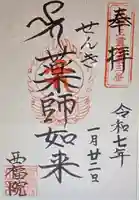 奉拝
せんき
薬師如来
令和七年
一月廿二日
西福院